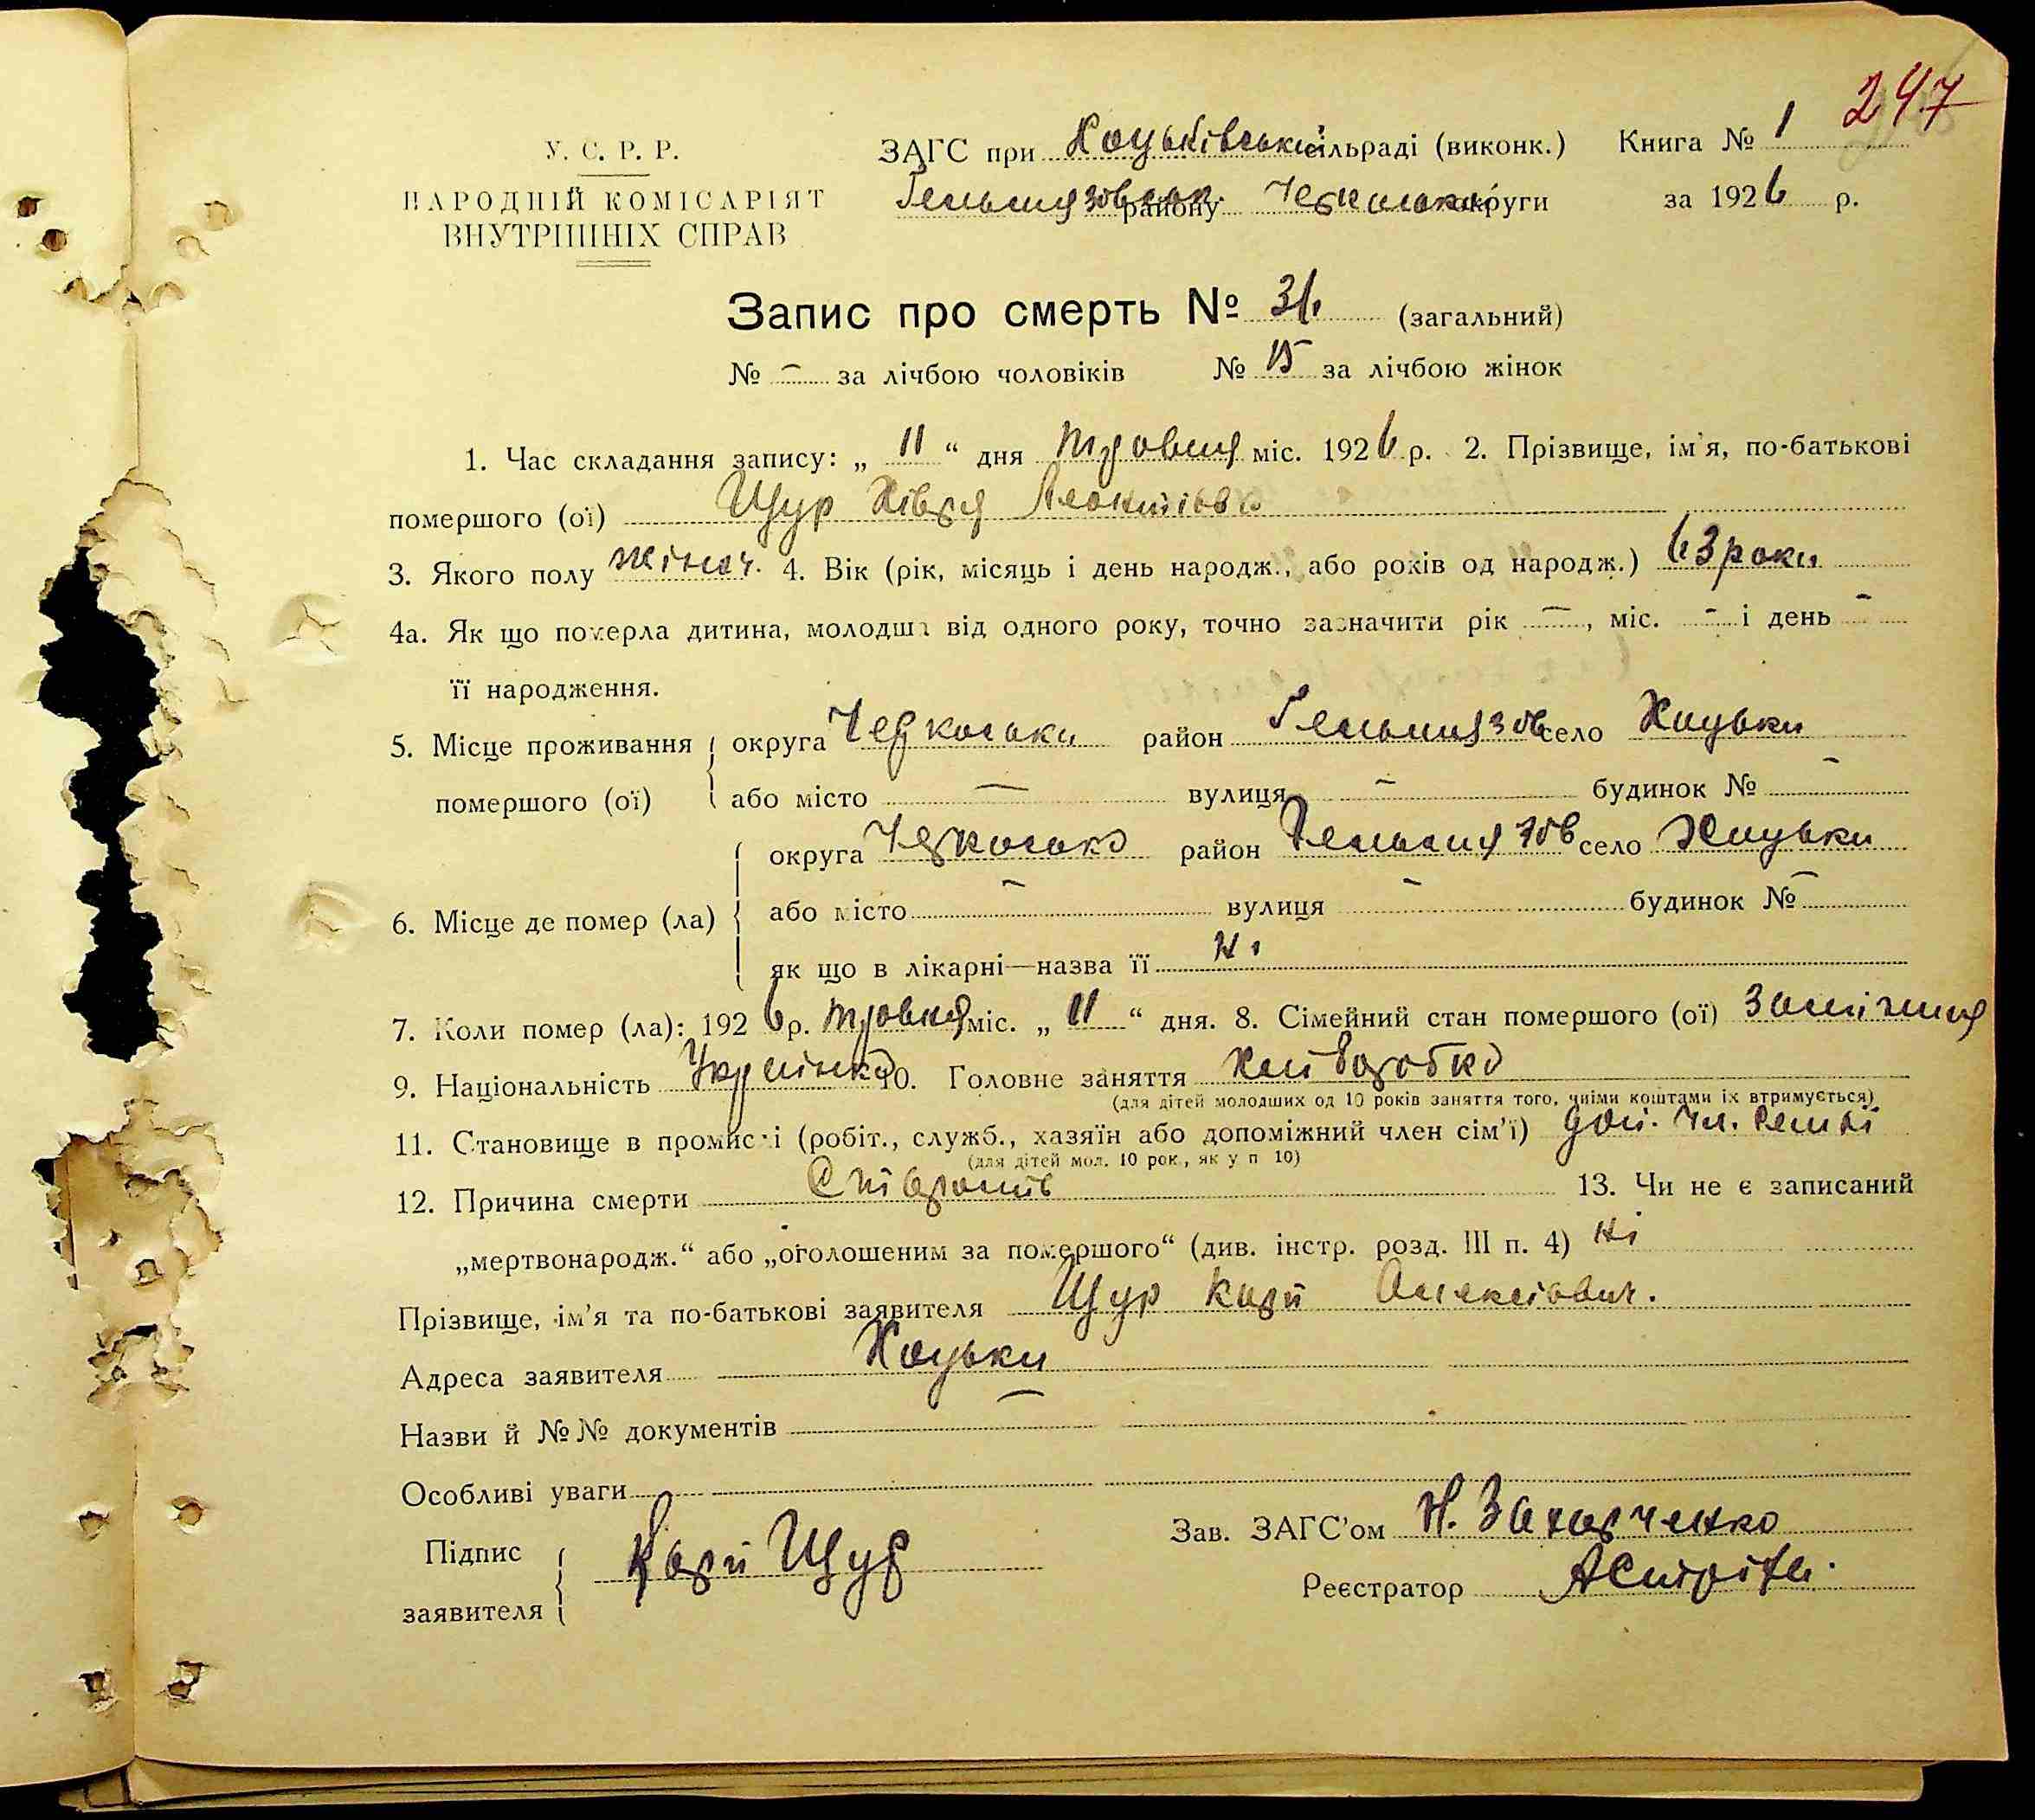 247
У. С. Р. Р.
НАРОДНІЙ КОМІСАРІЯТ
ВНУТРІШНІХ СПРАВ
ЗАГС при Хоцьківській сільраді (виконк.) Книга № 1
Гельмязівськ. району Черкаськ. округи за 1926 р.
Запис про смерть № 31 (загальний)
№ – за лічбою чоловіків № 15 за лічбою жінок
1. Час складання запису: „ 11 “ дня травня міс. 1926 р. 2. Прізвище, ім'я, по-батькові
помершого (ої) Щур Хівря
3. Якого полу жіноч. 4. Вік (рік, місяць і день народж., або років од народж.) 63 роки
4а. Як що померла дитина, молодша від одного року, точно зазначити рік –, міс. – і день –
її народження.
5. Місце проживання округа Черкаськи район Гельмязів село Хоцьки
помершого (ої) або місто – вулиця – будинок № –
округа Черкаська район Гельмязів село Хоцьки
6. Місце де помер (ла) або місто – вулиця – будинок № –
як що в лікарні—назва її Ні
7. Коли помер (ла): 1926 р. травня міс. „ 11 “ дня. 8. Сімейний стан помершого (ої) Заміжня
9. Національність Українка 10. Головне заняття Хліборобка
(для дітей молодших од 10 років заняття того, чиїми коштами їх втримується)
11. Становище в промислі (робіт., служб., хазяїн або допоміжний член сім'ї) доп. чл. семьї
(для дітей мол. 10 рок., як у п 10)
12. Причина смерти 13. Чи не є записаний
„мертвонародж.“ або „оголошеним за помершого“ (див. інстр. розд. III п. 4) Ні
Прізвище, ім'я та по-батькові заявителя Щур Карп Олексієвич.
Адреса заявителя Хоцьки
Назви й №№ документів –
Особливі уваги
Підпис Карп Щур Зав. ЗАГС'ом Н. Захарченко
заявителя Реєстратор